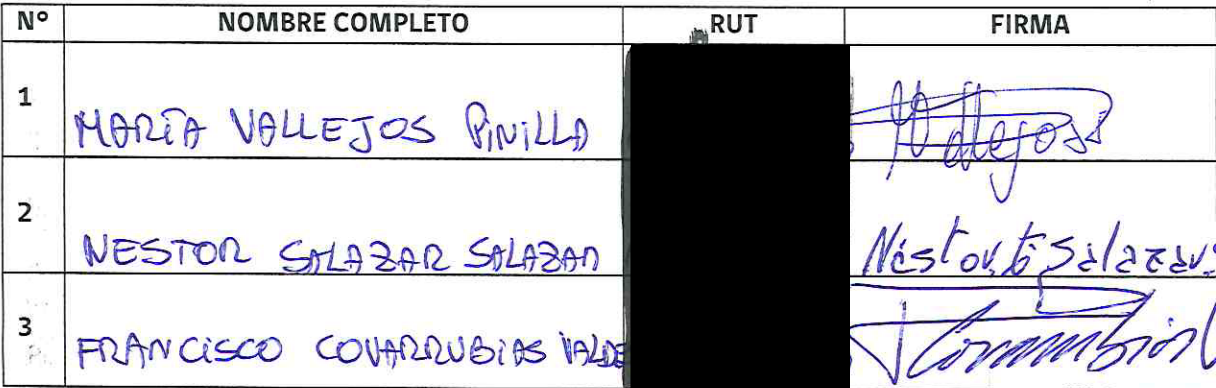 Nº NOMBRE COMPLETO RUT FIRMA
1 MARÍA VALLEJOS PINILLA Vallejos
2 NESTOR SALAZAR SALAZAR Néstor Salazar
3 FRANCISCO COVARRUBIAS VALDE